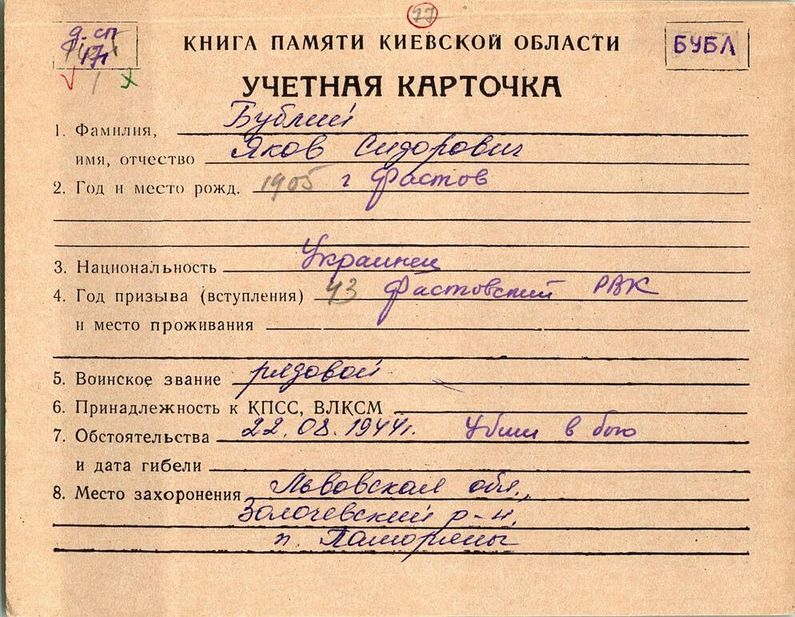 77
д. сп
КНИГА ПАМЯТИ КИЕВСКОЙ ОБЛАСТИ
БУБЛ
УЧЕТНАЯ КАРТОЧКА
1. Фамилия, Бублий
имя, отчество Яков Сидорович
2. Год и место рожд. 1905 г Фастов
3. Национальность Украинец
4. Год призыва (вступления) 43 Фастовский РВК
и место проживания
5. Воинское звание рядовой
6. Принадлежность к КПСС, ВЛКСМ
7. Обстоятельства 22.08.1944г. Убит в бою
и дата гибели
8. Место захоронения Львовская обл.,
Золочевский р-н,
п. Поморяны